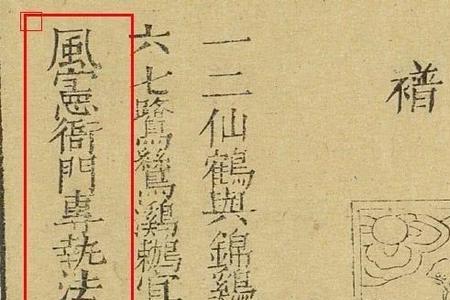 一二仙鶴與錦鷄
六七鷺鷥鸂鶒宜
風憲衙門專執法